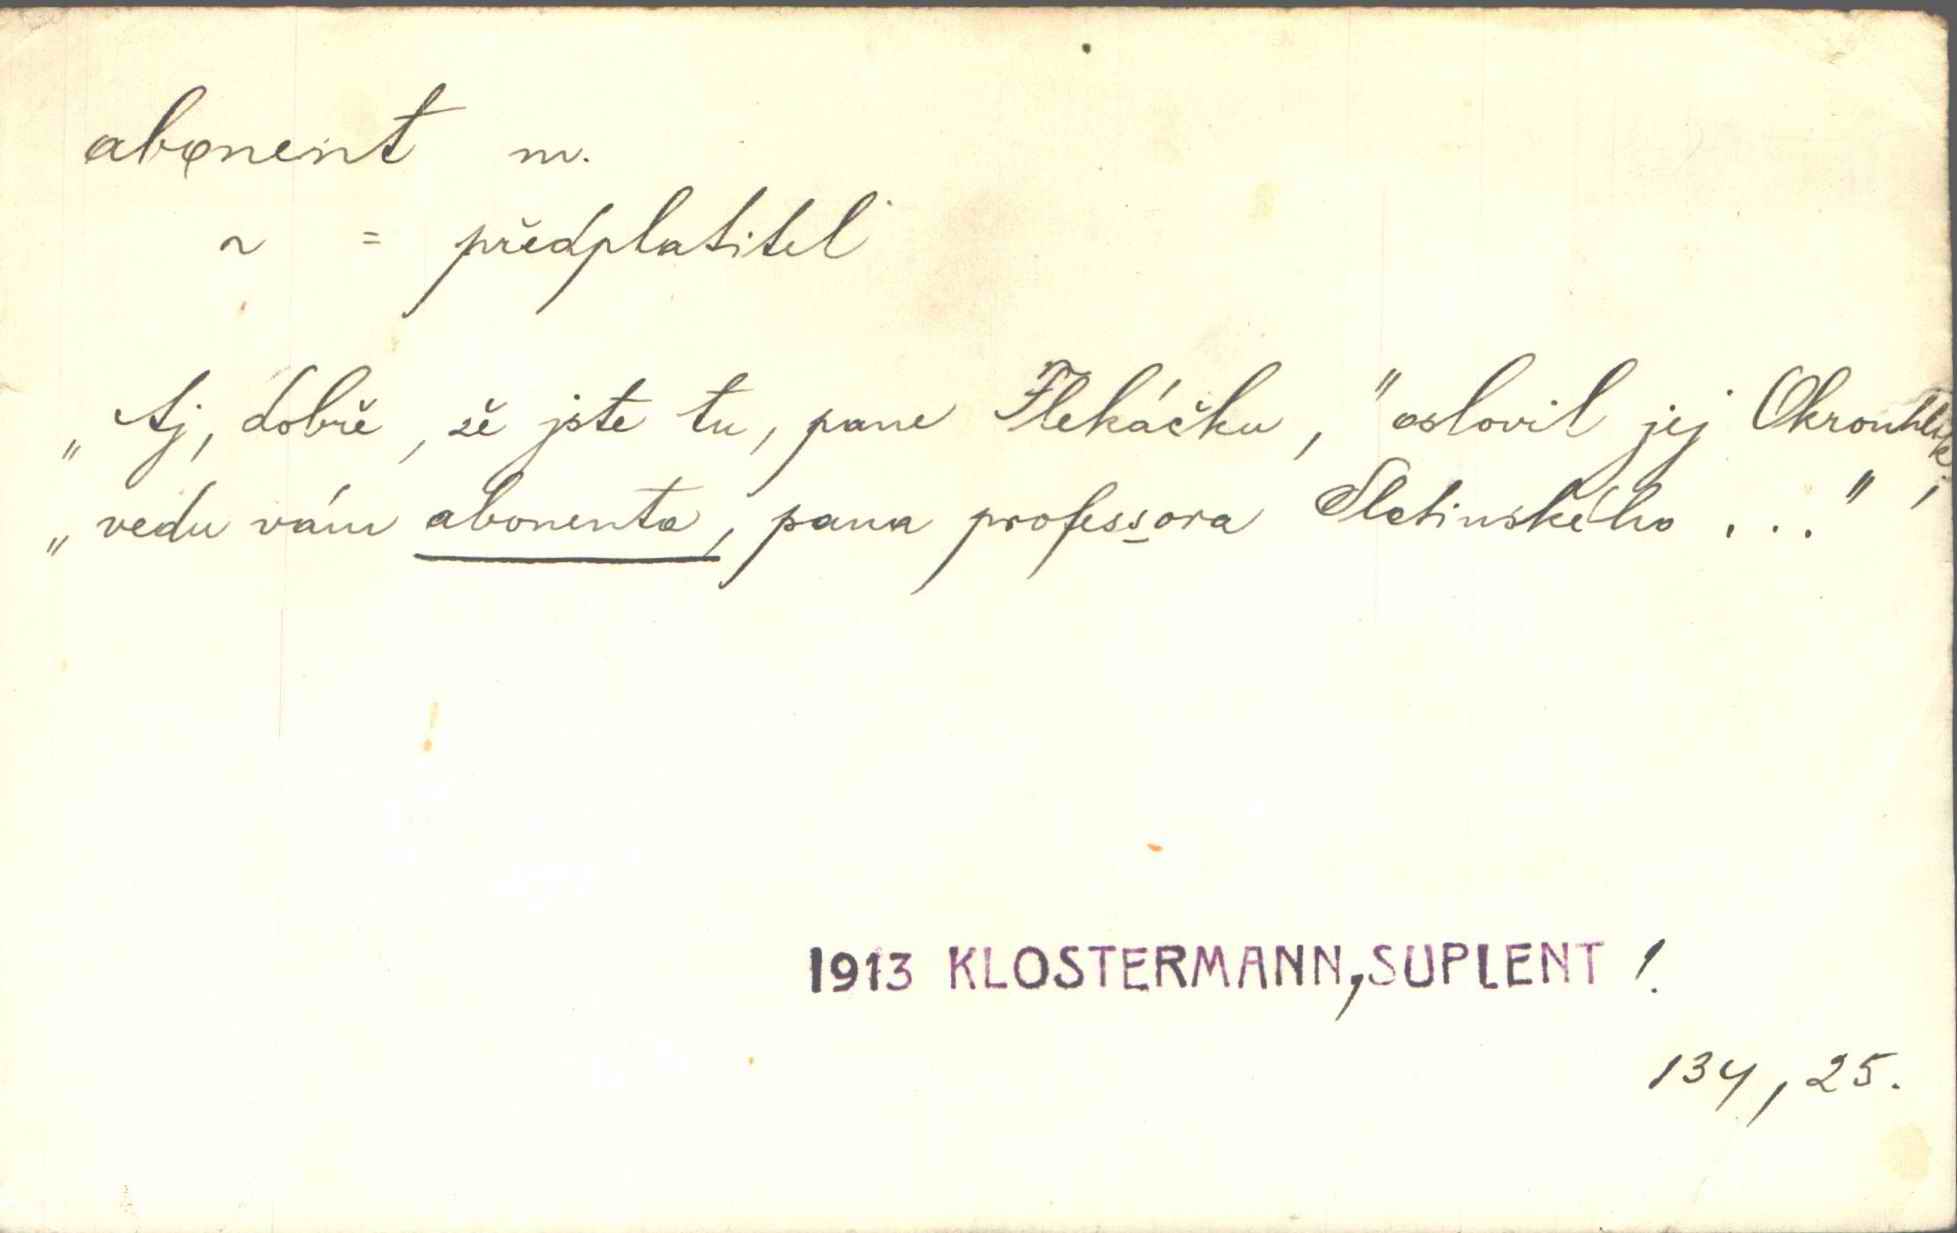 abonent m.
~ = předplatitel
„Aj, dobře, že jste tu, pane Flekáčku," oslovil jej Okrouhlík,
„vedu vám abonenta, pana professora Sletinského ..."
1913 KLOSTERMANN, SUPLENT !
134, 25.